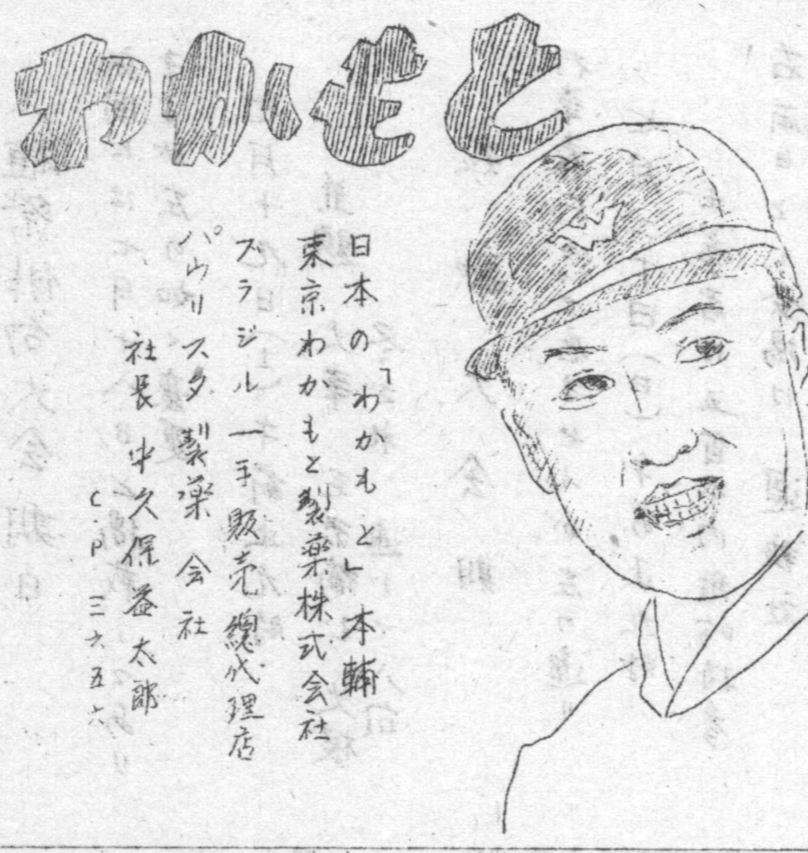 わかもと
日本の「わかもと」本輔
東京わかもと製薬株式会社
ブラジル一手販売總代理店
パウリスタ製薬会社
社長 中久保益太郎
C.P 三六五六